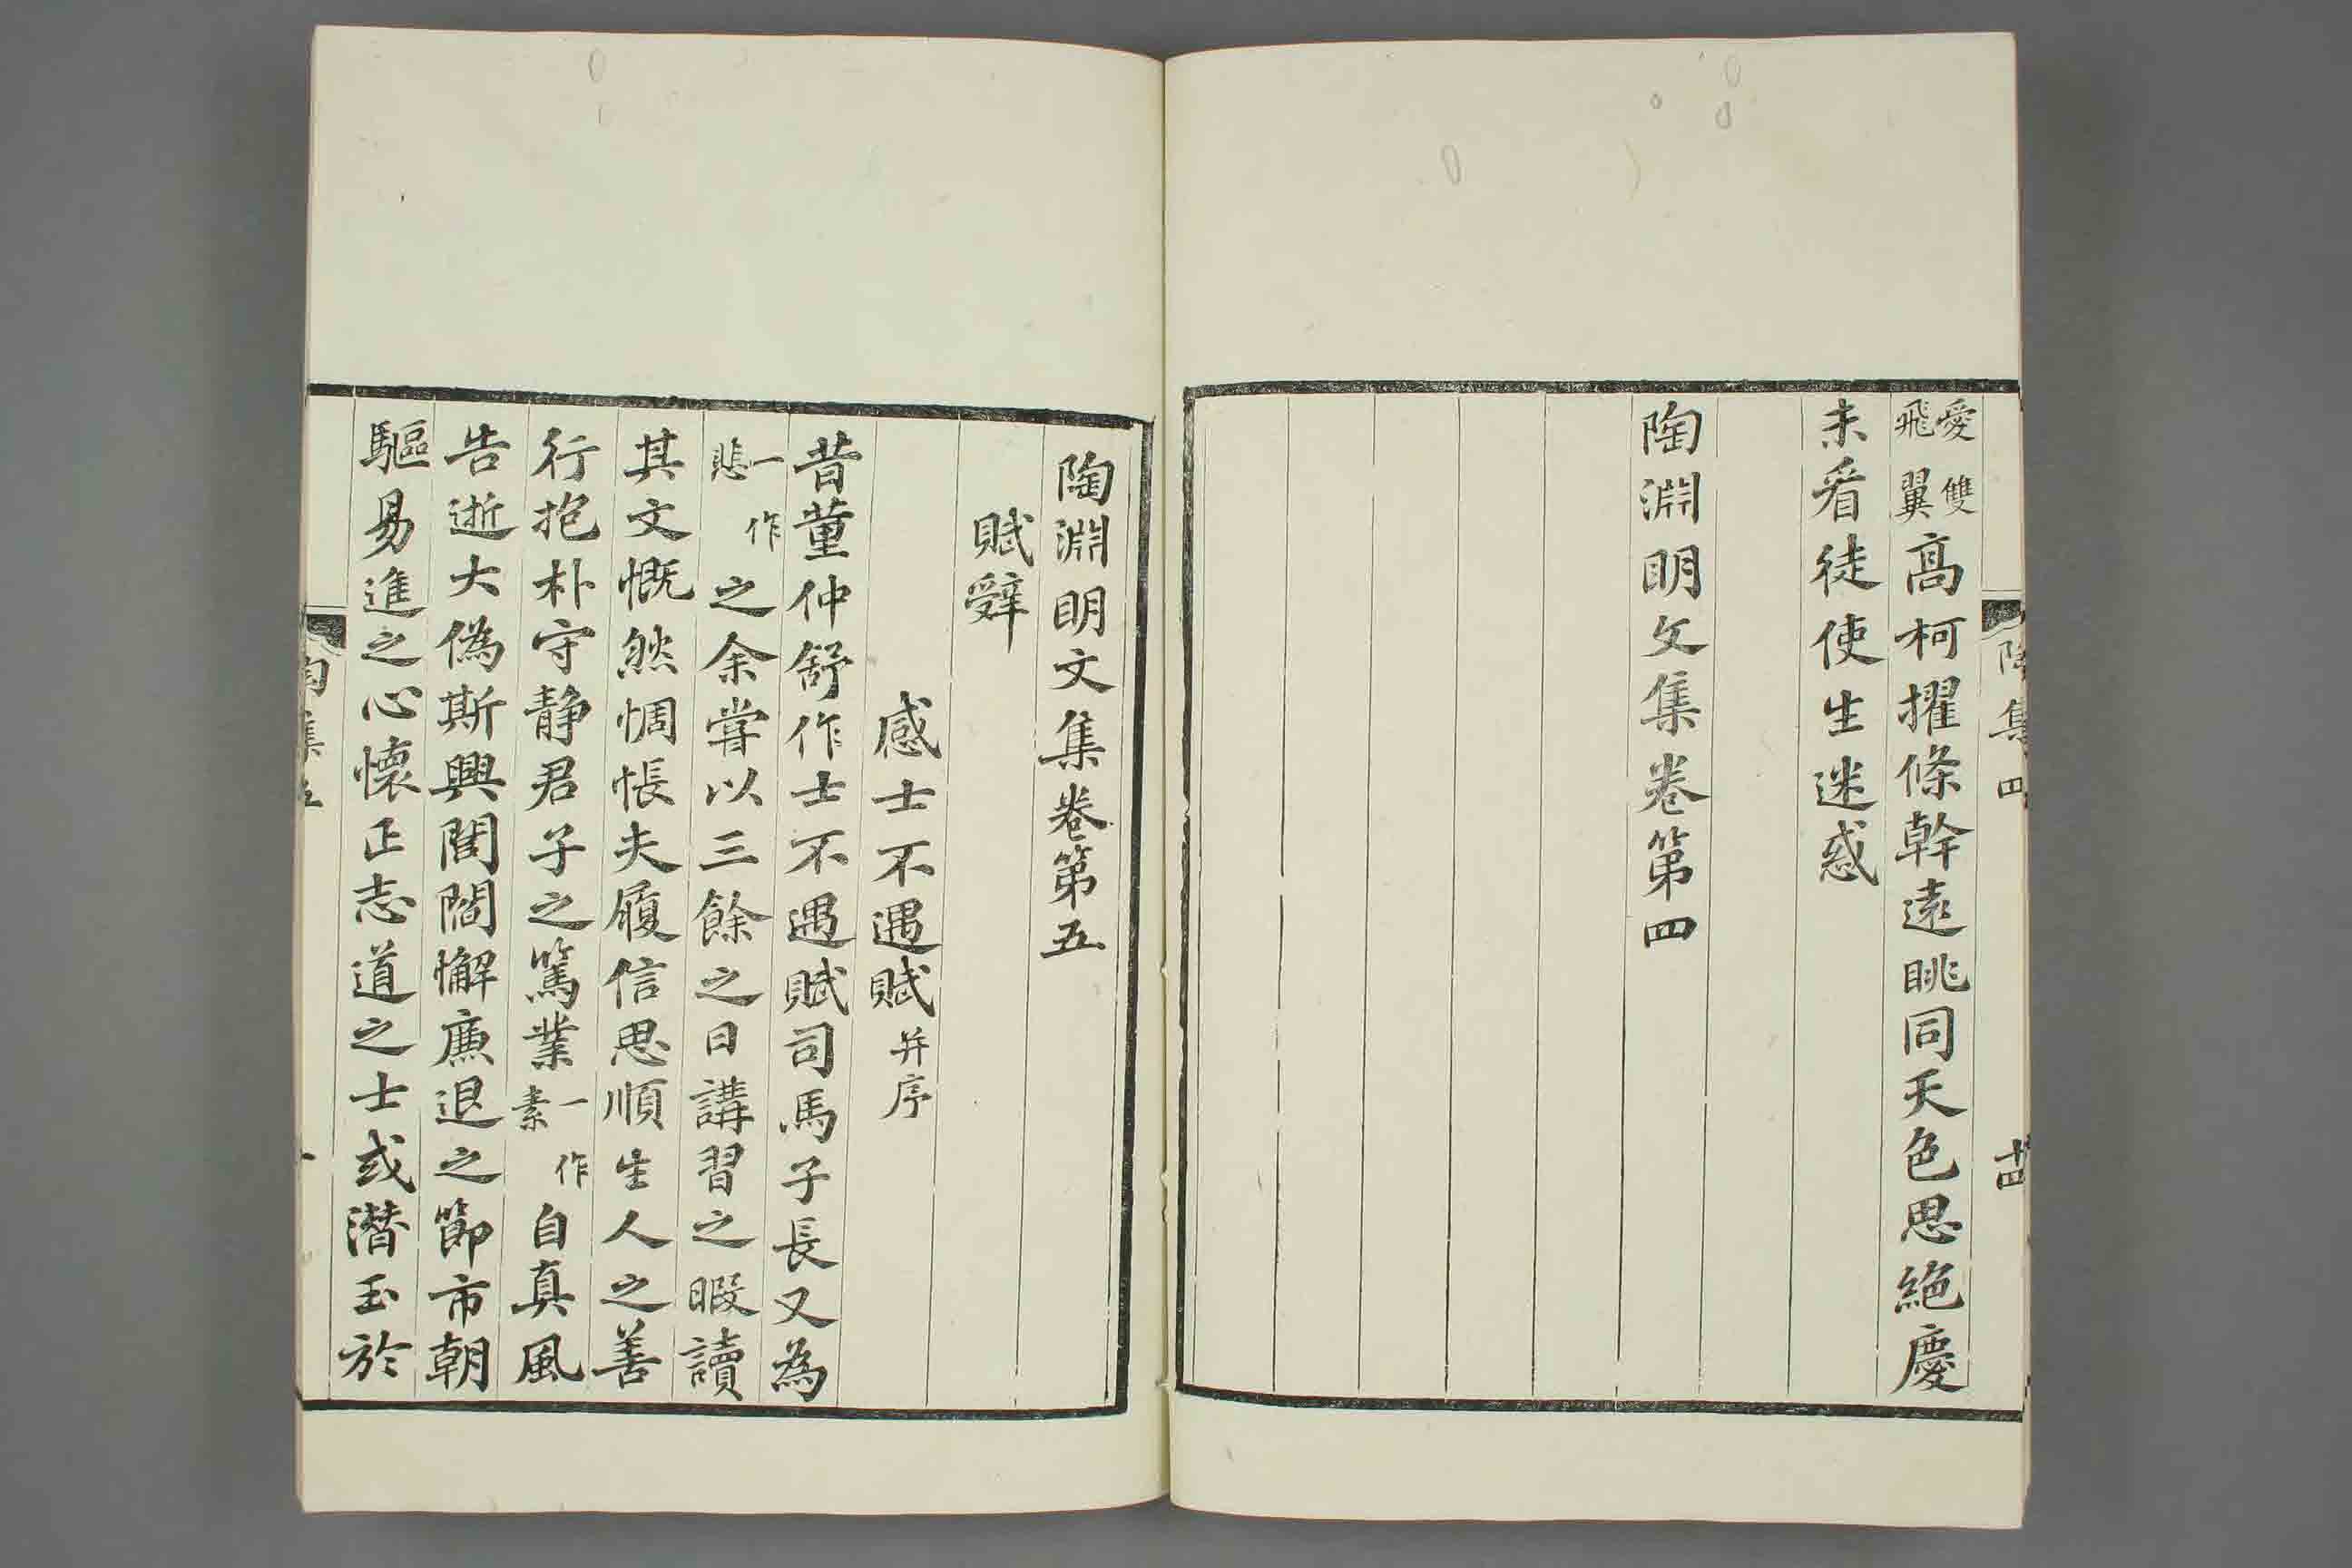 愛雙飛翼高柯擢條幹遠眺同天色思絶慶
未看徒使生迷惑
陶淵明文集卷第四
陶集四
十四
陶淵明文集卷第五
賦辭
感士不遇賦并序
昔董仲舒作士不遇賦司馬子長又為
一作悲之余嘗以三餘之日講習之暇讀
其文慨然惆悵夫履信思順生人之善
行抱朴守静君子之篤業一作素自真風
告逝大偽斯興閭閻懈廉退之節市朝
驅易進之心懷正志道之士或潛玉於
陶集五
一